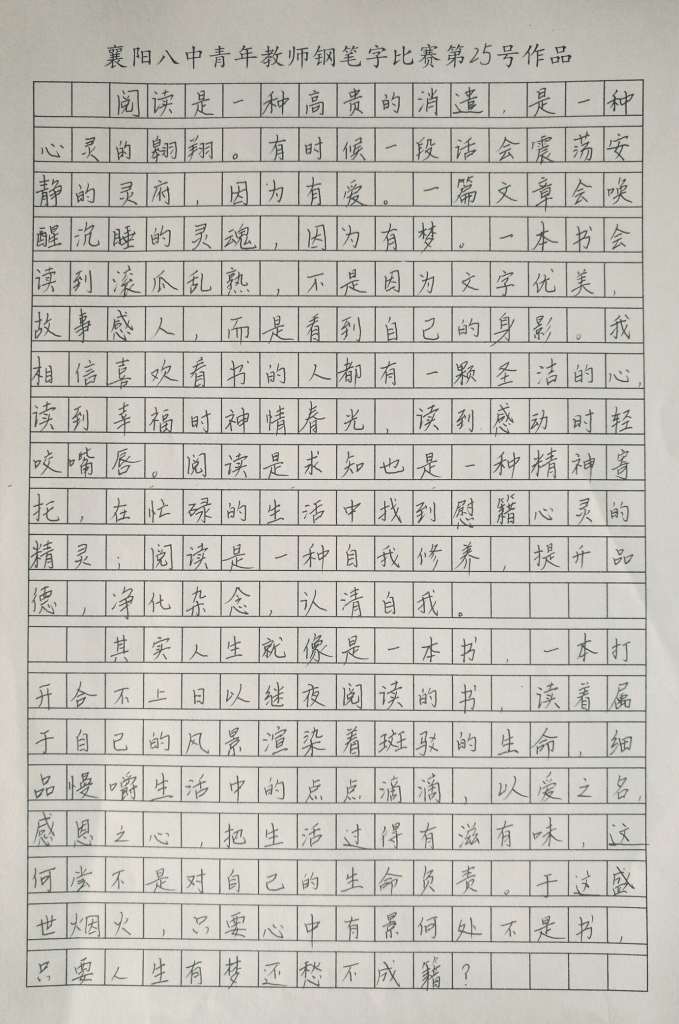 襄阳八中青年教师钢笔字比赛第25号作品
阅读是一种高贵的消遣，是一种
心灵的翱翔。有时候一段话会震荡安
静的灵府，因为有爱。一篇文章会唤
醒沉睡的灵魂，因为有梦。一本书会
读到滚瓜乱熟，不是因为文字优美，
故事感人，而是看到自己的身影。我
相信喜欢看书的人都有一颗圣洁的心，
读到幸福时神情春光，读到感动时轻
咬嘴唇。阅读是求知也是一种精神寄
托，在忙碌的生活中找到慰籍心灵的
精灵；阅读是一种自我修养，提升品
德，净化杂念，认清自我。
其实人生就像是一本书，一本打
开合不上日以继夜阅读的书，读着属
于自己的风景渲染着斑驳的生命，细
品慢嚼生活中的点点滴滴，以爱之名，
感恩之心，把生活过得有滋有味，这
何尝不是对自己的生命负责。于这盛
世烟火，只要心中有景何处不是书，
只要人生有梦还愁不成籍？